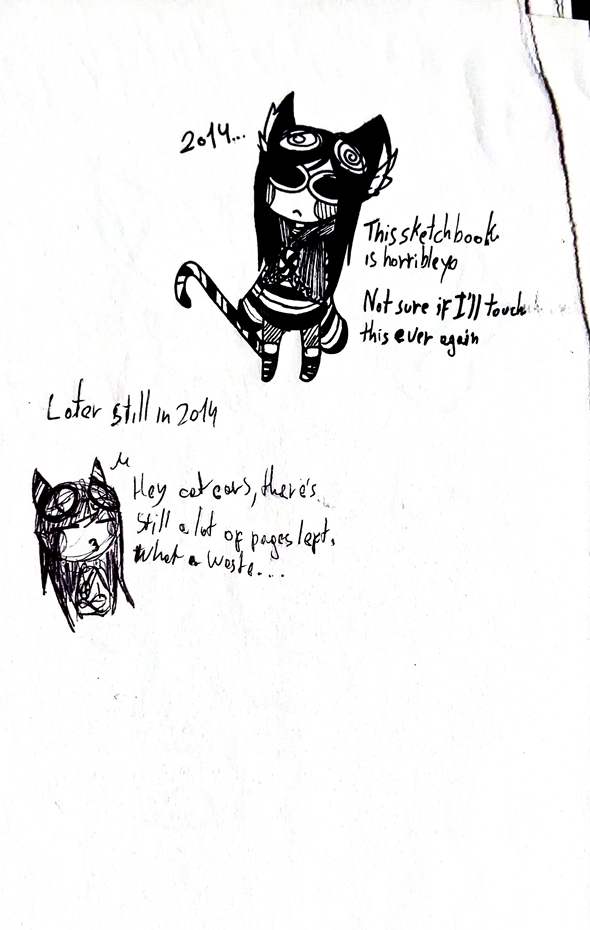 2014...
This sketchbook
is horrible yo
Not sure if I'll touch
this ever again
Later still in 2014
Hey cat ears, there's
still a lot of pages left.
What a waste....